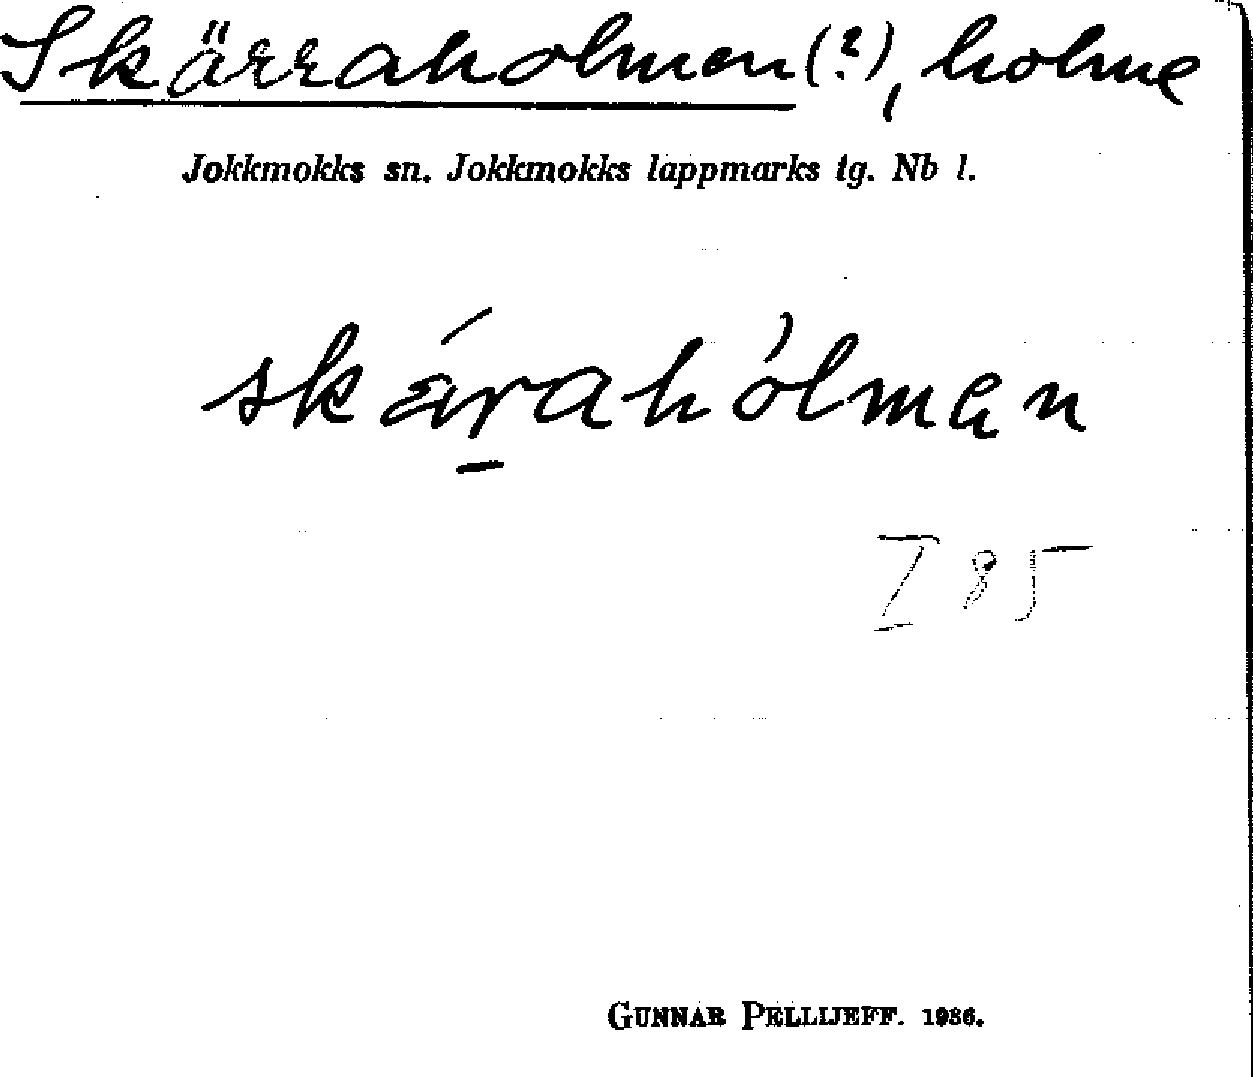 Skärraholmen (?), holme
Jokkmokks sn. Jokkmokks lappmarks tg. Nb l.
skæ̀raho̍lmen
I 85
GUNNAR PELLIJEFF. 1986.